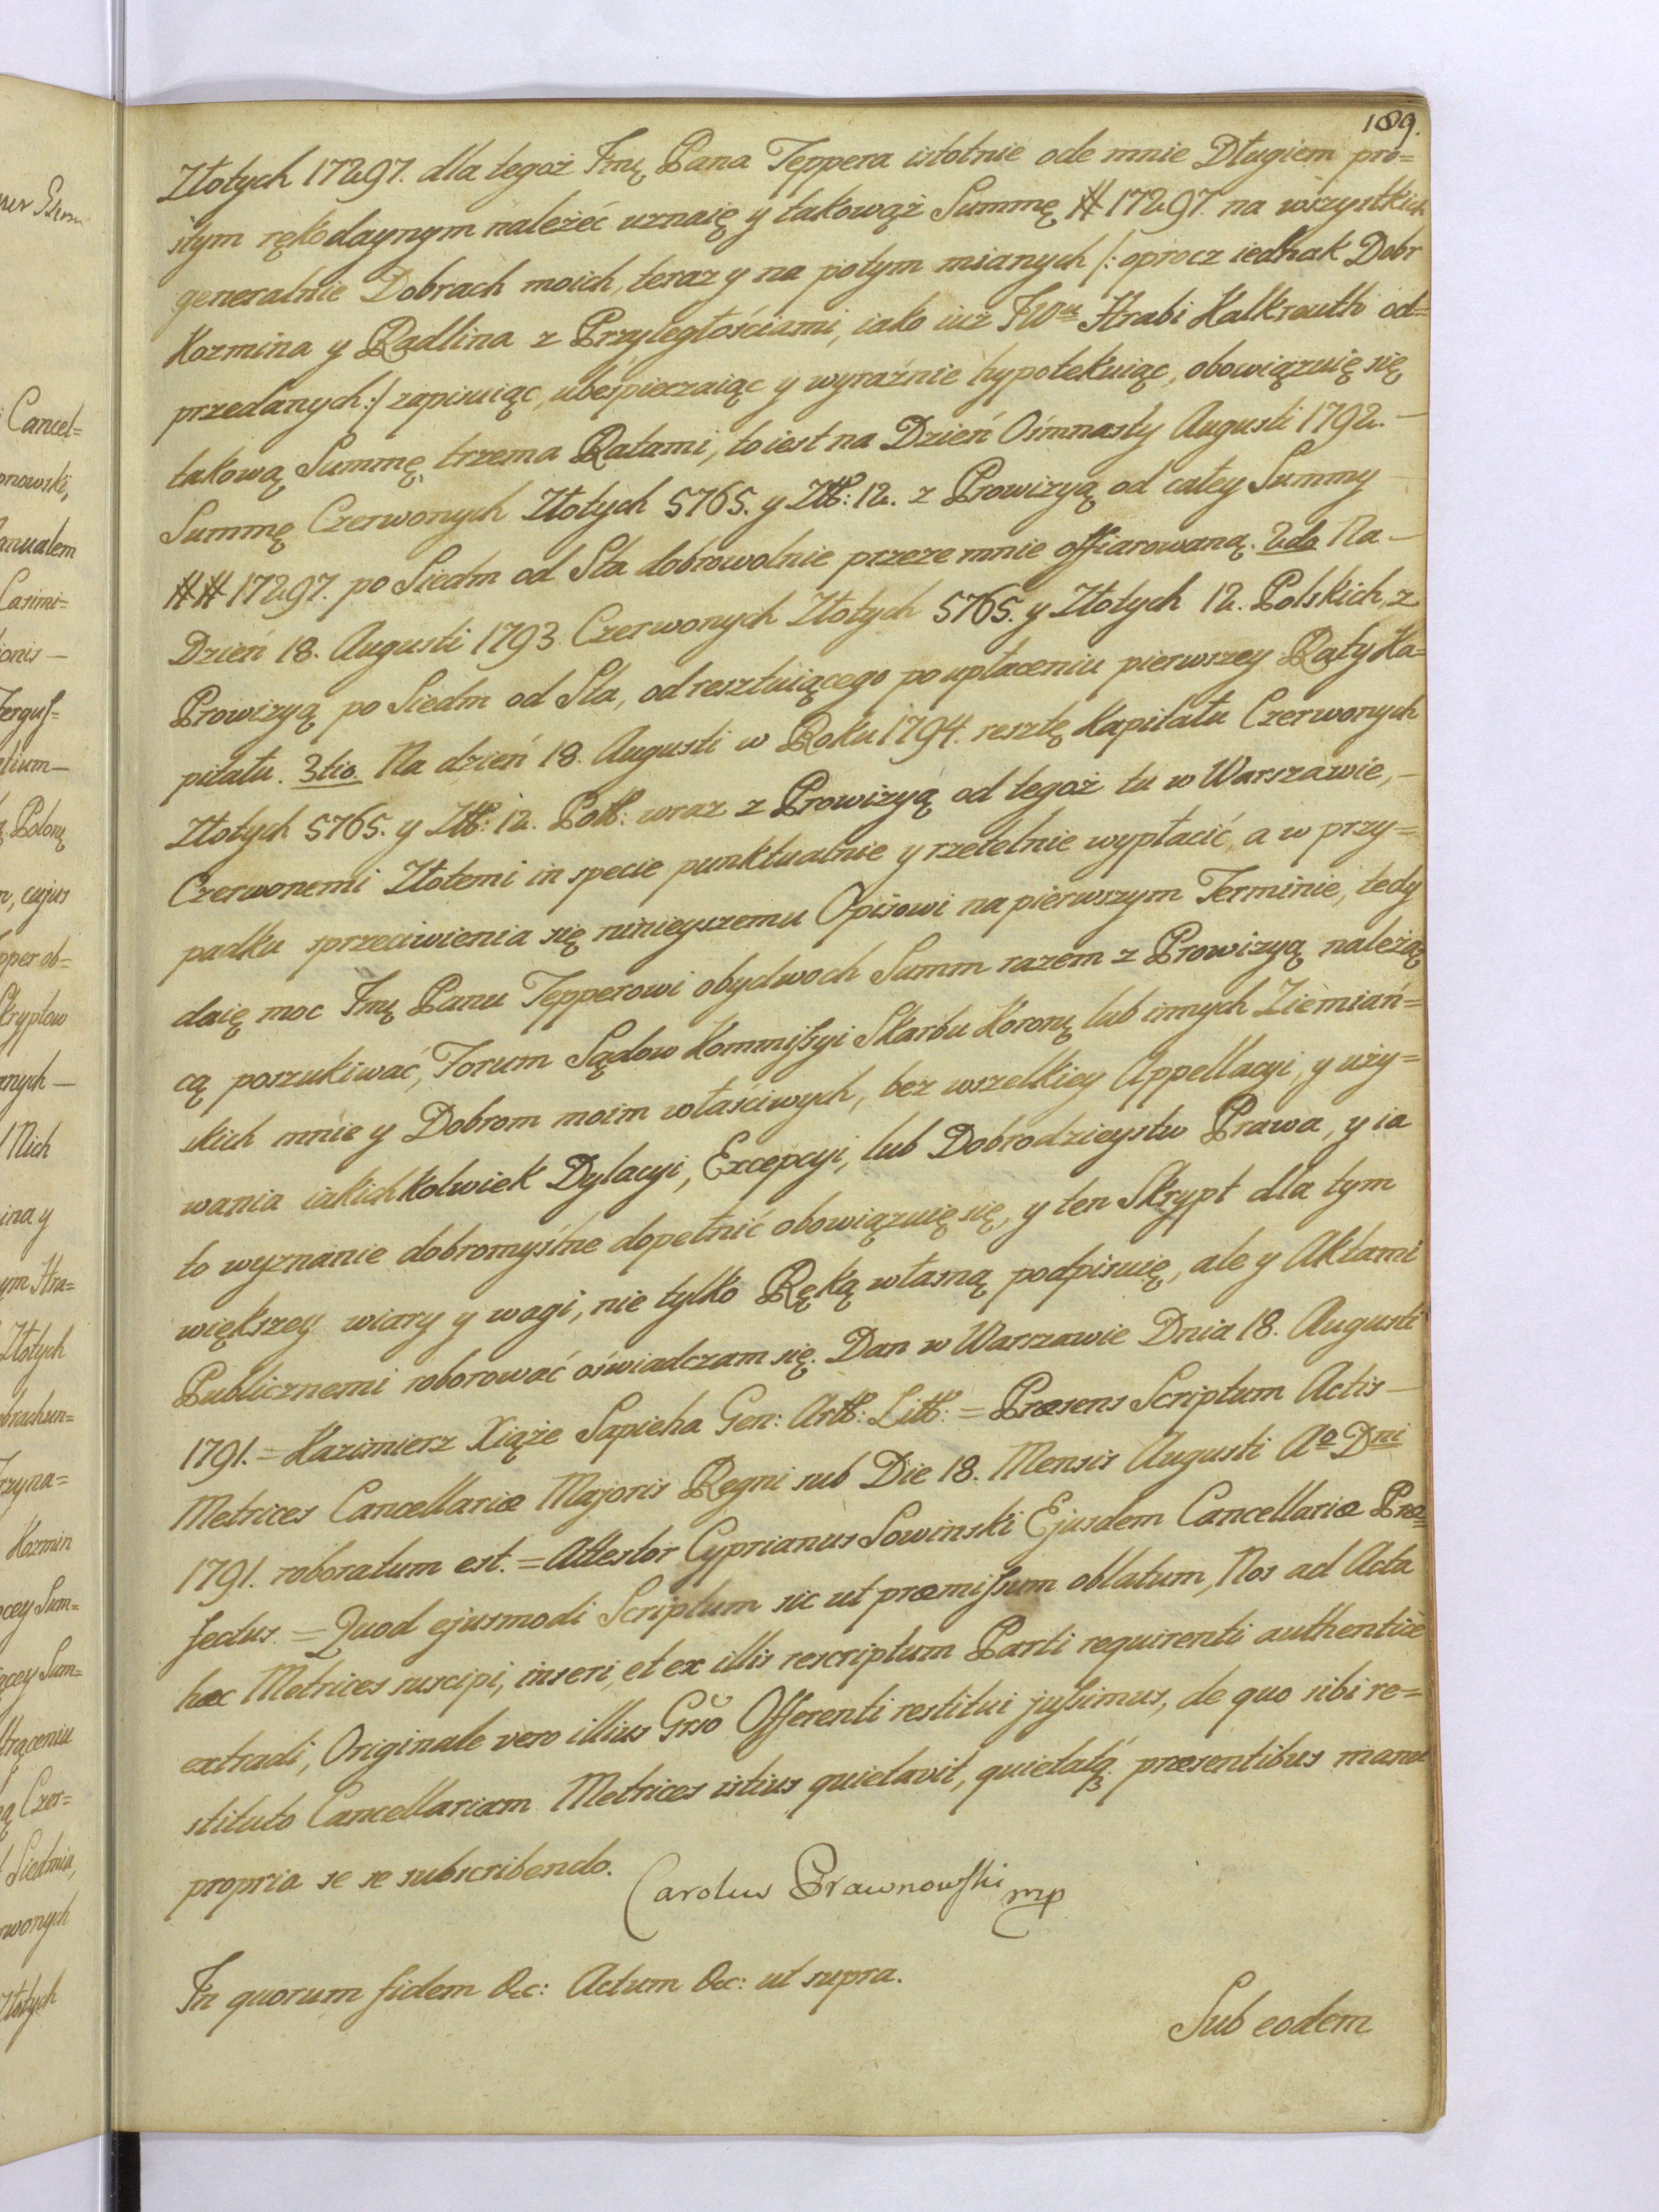 189.
Złotych 17297. dla tegoż Jmę Pana Teppera istotnie ode mnie Długiem pro=
stym rękodaynym należeć uznaię y takowąż Summę # 17297. na wszystkich
generalnie Dobrach moich, teraz y na potym mianych /: oprocz iednak Dobr
Kozmina y Radlina z Przyległościami, iako iuż JWu Hrabi Kalkreuth od=
przedanych :/ zapisuiąc, ubespieczaiąc y wyraźnie hypotekuiąc, obowiązuię się
takową Summę, trzema Ratami, to iest na Dzień Ośmnasty Augusti 1792. —
Summę Czerwonych Złotych 5765. y Złł: 12. z Prowizyą od całey Summy —
## 17297. po Siedm od Sta dobrowolnie przeze mnie offiarowaną. 2do Na —
Dzień 18. Augusti 1793 Czerwonych Złotych 5765. y Złotych 12. Polskich, z
Prowizyą po Siedm od Sta, od resztuiącego po upłaceniu pierwszey Raty Ka=
pitału. 3tio. Na dzień 18. Augusti w Roku 1794. resztę Kapitału Czerwonych
Złotych 5765. y Złł: 12. Poll: wraz z Prowizyą od tegoż tu w Warszawie, —
Czerwonemi Złotemi in specie punktualnie y rzetelnie wypłacić, a w przy=
padku sprzeciwienia się ninieyszemu Opisowi na pierwszym Terminie, tedy
daię moc Jmę Panu Tepperowi obydwoch Summ razem z Prowizyą należą
cą poszukiwać, Forum Sądow Kommissyi Skarbu Koronę lub innych Ziemiań=
skich mnie y Dobrom moim właściwych, bez wszelkiey Appellacyi, y uży=
wania iakichkolwiek Dylacyi, Excepcyi, lub Dobrodzieystw Prawa, y ia
to wyznanie dobromyślne dopełnić obowiązuię się, y ten Skrypt dla tym
większey wiary y wagi, nie tylko Ręką własną podpisuię, ale y Aktami
Publicznemi roborować oświadczam się. Dan w Warszawie Dnia 18. Augusti
1791. = Kazimierz Xiąże Sapieha Gen: Artt: Litt: = Præsens Scriptum Actis —
Metrices Cancellariæ Majoris Regni sub Die 18. Mensis Augusti Ao Dni
1791. roboratum est. = Attestor Cyprianus Sowinski Ejusdem Cancellariæ Præ=
fectus. = Quod ejusmodi Scriptum sic ut præmissum oblatum, Nos ad Acta
hæc Metrices suscipi, inseri, et ex illis rescriptum Parti requirenti authenticè
extradi, Originale vero illius Grso Offerenti restitui jussimus, de quo sibi re=
stituto Cancellariam Metrices istius quietavit, quietatq; præsentibus manu
propria se se subscribendo.
Carolus Prawnowski mp
In quorum fidem &c: Actum &c: ut supra.
Sub eodem